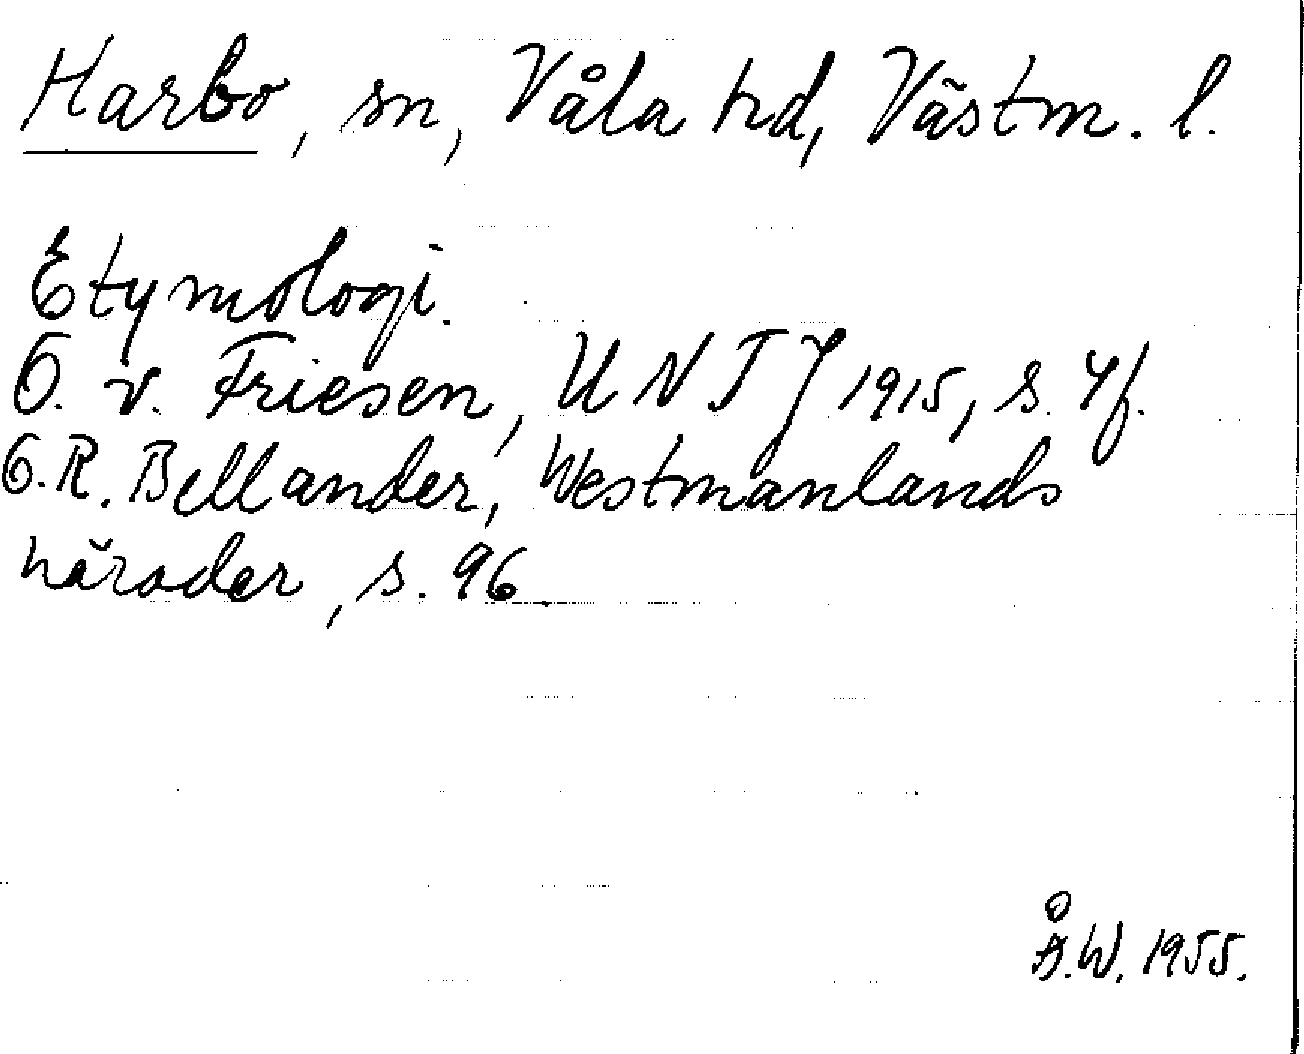 Harbo, sn, Våla hd, Västm. l.
Etymologi.
O. v. Friesen, UNTJ 1915, s. 4f.
G.R. Bellander, Westmanlands
härader, s. 96.
Å.W. 1955.